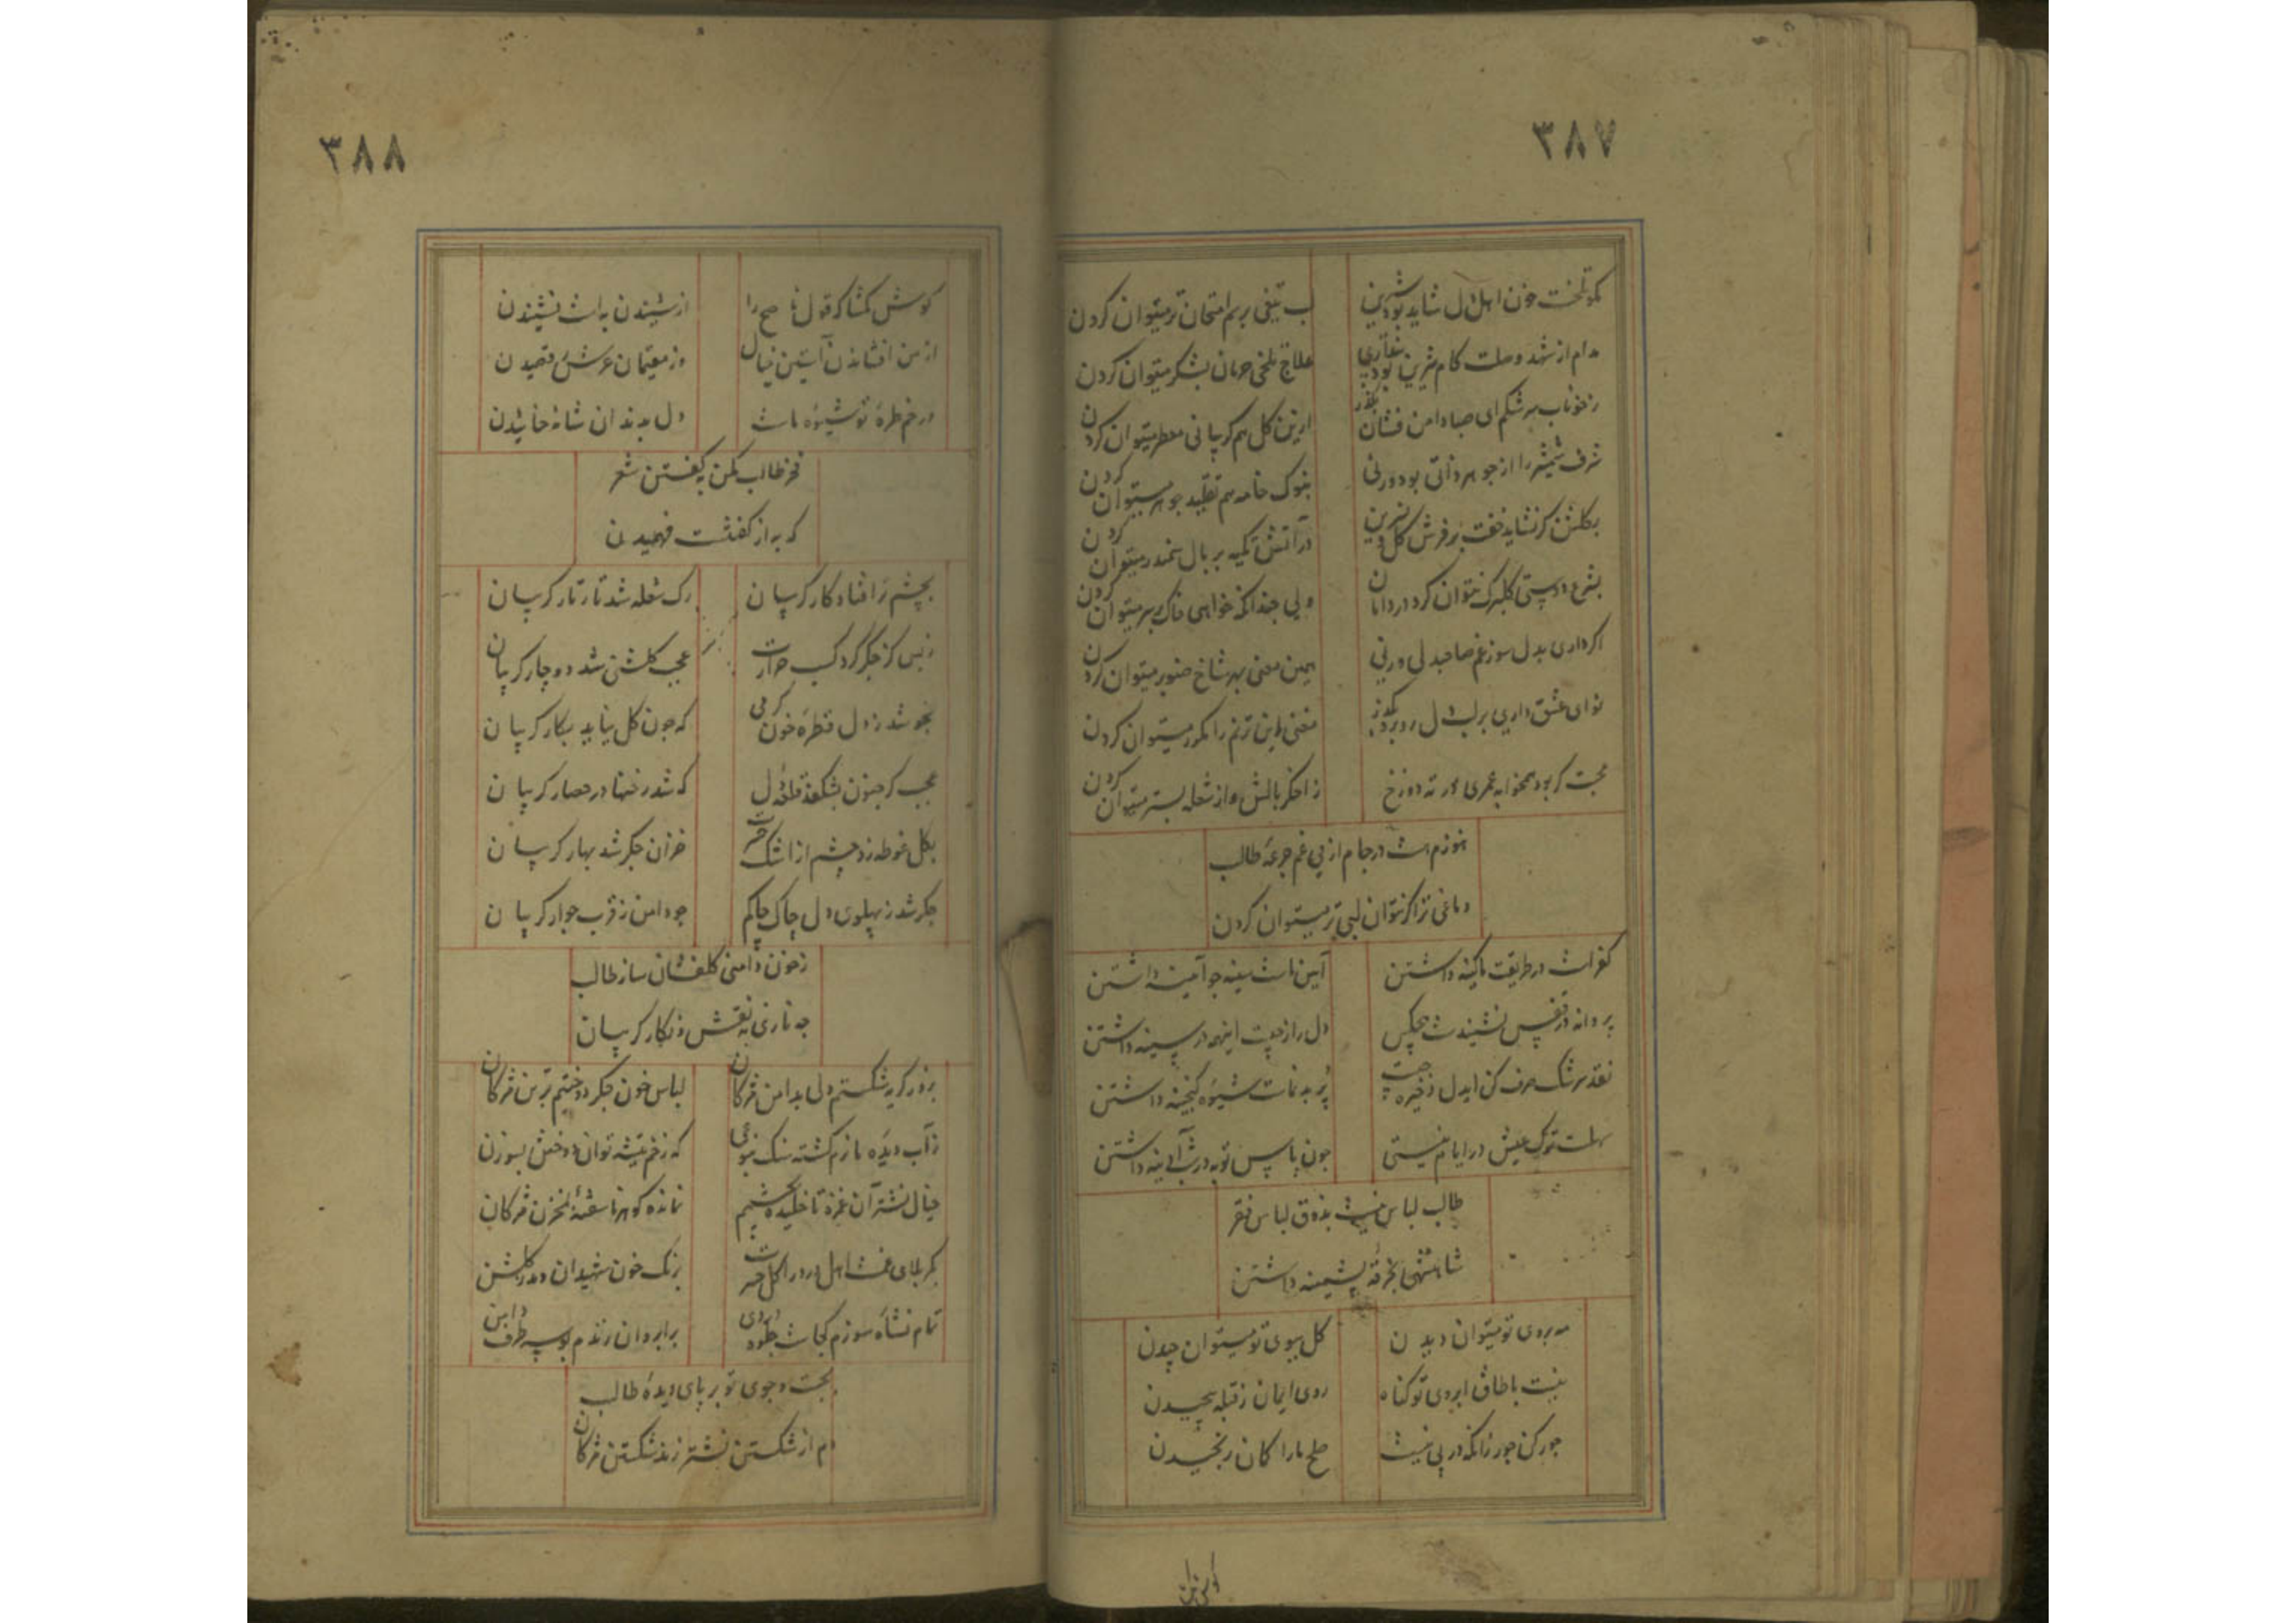 ۳۸۷
مکو تلخست خون اهل دل شاید بود شیرین
لب تیغی برسم امتحان تر میتوان کردن
مدام از شهد وصلت کام شیرین بودن
علاج تلخی حرمان بشکر میتوان کردن
ز خوناب سرشکم ای صبا دامن فشان بگذر
ازین گل هم گریبانی معطر میتوان کردن
شرف شمشیر را از جوهر ذاتی بود ورنی
بنوک خامه هم تقلید جوهر میتوان کردن
بگلشن گر نشاید خفت بر فرش گل و نسرین
در آتش تکیه بر بال سمندر میتوان کردن
بشرع دوستی گلبرگ نتوان کرد در دامان
ولی چندانکه خواهی خاک بر سر میتوان کردن
اگر داری بدل سوز غم صاحبدلی ورنی
همین معنی بهر شاخ صنوبر میتوان کردن
نوای عشق داری بر لب دل رو بدرد
مغنی این ترنم را مکرر میتوان کردن
محبت گر بود همخوابه عمری در ته دوزخ
ز اخگر بالش و از شعله بستر میتوان کردن
هنوزم هست در جام از پی غم جرعه طالب
دماغی تر اگر نتوان لبی تر میتوان کردن
کفر است در طریقت ما کینه داشتن
آیین ماست سینه چو آیینه داشتن
پروانه در قفس نشیندست هیچکس
دل را ز چیست اینهمه در سینه داشتن
نقد سرشک صرف کن ایدل ذخیره چیست
پر بدنماست شیوه گنجینه داشتن
سهلست ترک عیش در ایام نیستی
چون پاس توبه در شب آدینه داشتن
طالب لباس نیست بذوق لباس فقر
شاهنشهی بخرقه پشمینه داشتن
مه بروی تو میتوان دیدن
گل ببوی تو میتوان چیدن
نیست با طاق ابروی تو گناه
روی ایمان ز قبله پیچیدن
جور کن جور زانکه در پی نیست
صلح ما را گمان رنجیدن
۳۸۸
گوش مگشا که قول ناصح را
از شنیدن به است نشنیدن
از من افشاندن آستین خیال
وز مقیمان عرش رقصیدن
در خم طره تو شیوه ماست
دل بدندان شانه خاییدن
فخر طالب مکن بگفتن شعر
که به از گفتنست فهمیدن
بچشم تر افتاد کار گریبان
رگ شعله شد تار تار گریبان
ز بس کز جگر گرد کسب حرارت
عجب گلشنی شد دوچار گریبان
بجوشد ز دل قطره خون گرمی
که چون گل بیاید بکار گریبان
عجب گر جنون بشکند قلعه دل
که شد رخنها در حصار گریبان
بگل غوطه زد چشم از اشک
خزان جگر شد بهار گریبان
جگر شد ز پهلوی دل چاک چاکم
چو دامن ز قرب جوار گریبان
ز خون دامنی گلفشان ساز طالب
چه نازی به نقش و نگار گریبان
بزور گریه شکستم دلی بدامن مژگان
لباس خون جگر دوختم بر تن مژگان
ز آب دیده ما نرم گشته سنگ
که زخم تیشه توان دوختش بسوزن
خیال نشتر آن غمزه تا خلیده بچشمم
نمانده گوهر ناسفته بمخزن مژگان
کربلای غمت اهل درد را گل حسرت
برنگ خون شهیدان دمد ز گلشن
تمام نشاه سوزم کجاست
برابروان زندم بوسه طرف دامن
بجست و جوی تو بر پای دیده طالب
دم از شکستن نشتر زند شکستن مژگان